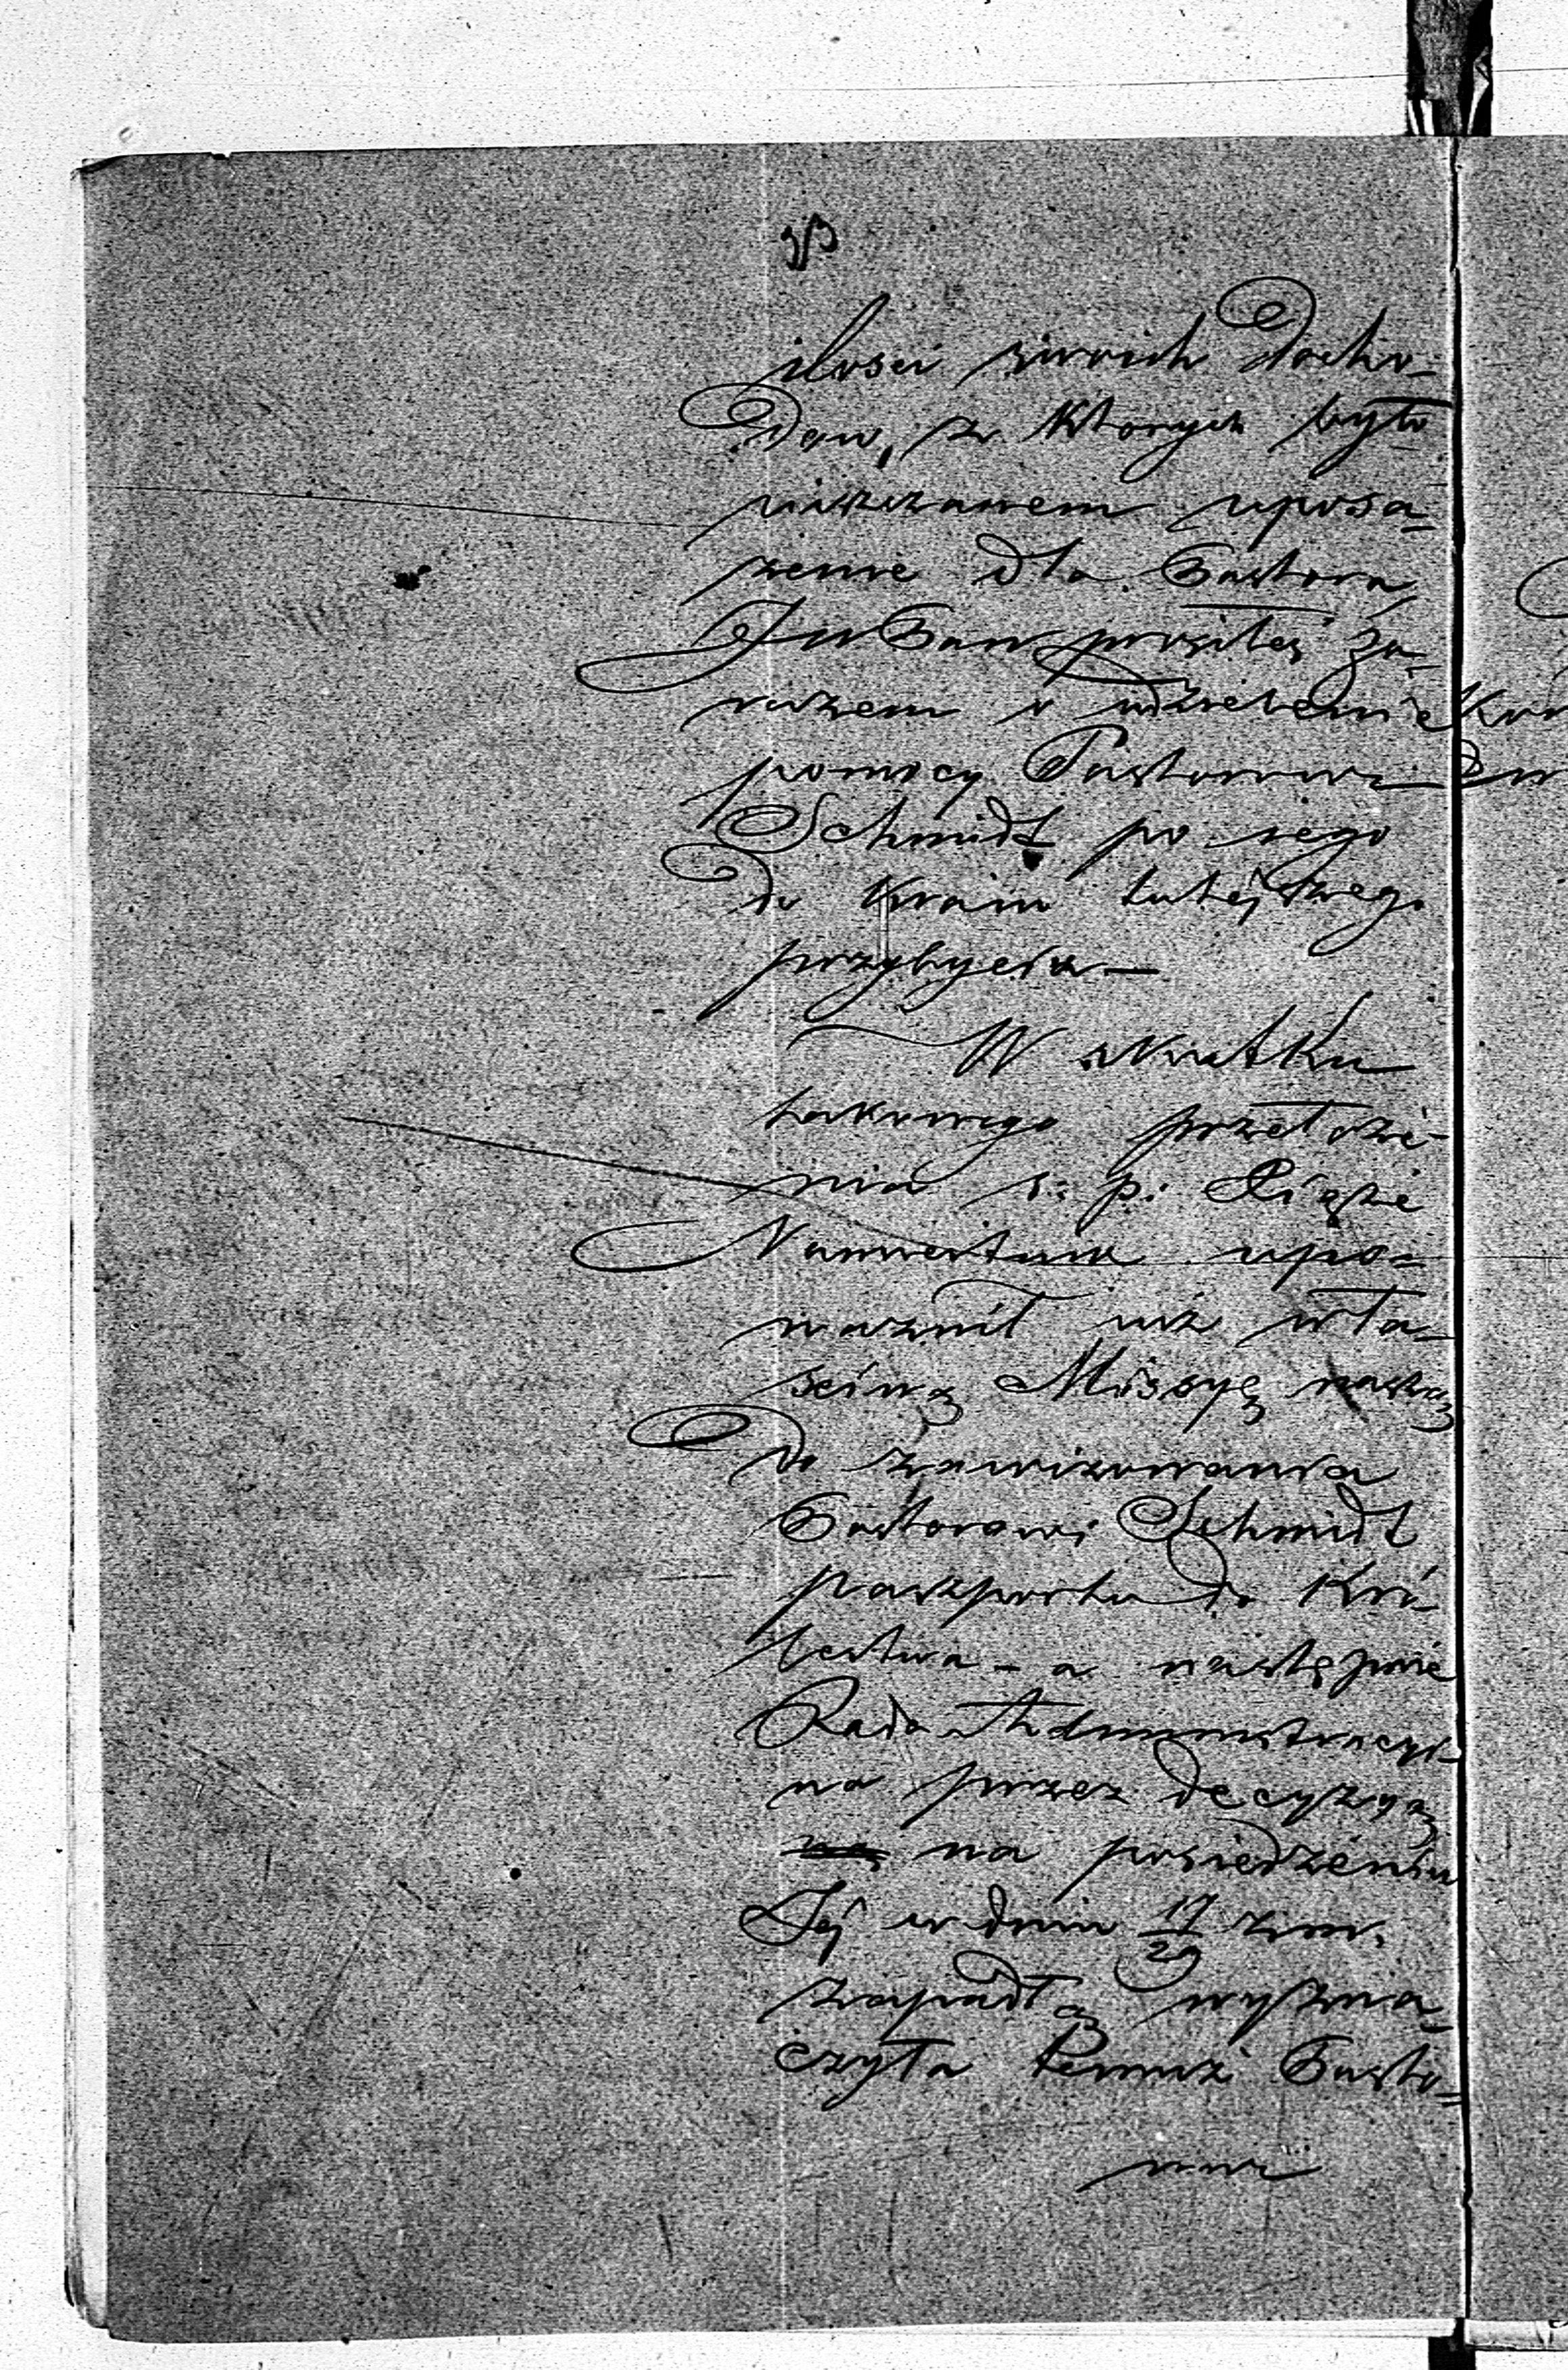 ilości swoich docho-
dow, z których było
uiszczanem uposa-
żenie dla Pastora,
JW Pan prosiłeś za-
razem o udzielenie
pomocy Pastorowi
Schmidt po jego
do Kraiu tutejszego
przybyciu —
W skutku
takowego przełoże-
nia ś: p: Xiąże
Namiestnik upo-
ważnił już wła-
ściwą Missyę naszą
do zawizowania
Pastorowi Schmidt
paszportu do Kró-
lestwa - a następnie
Rada Administracyj-
na przez decyzyą
na posiedzeniu
Jéj w dniu 17/29
zapadłą wyzna-
czyła temuż Pasto-
rowi